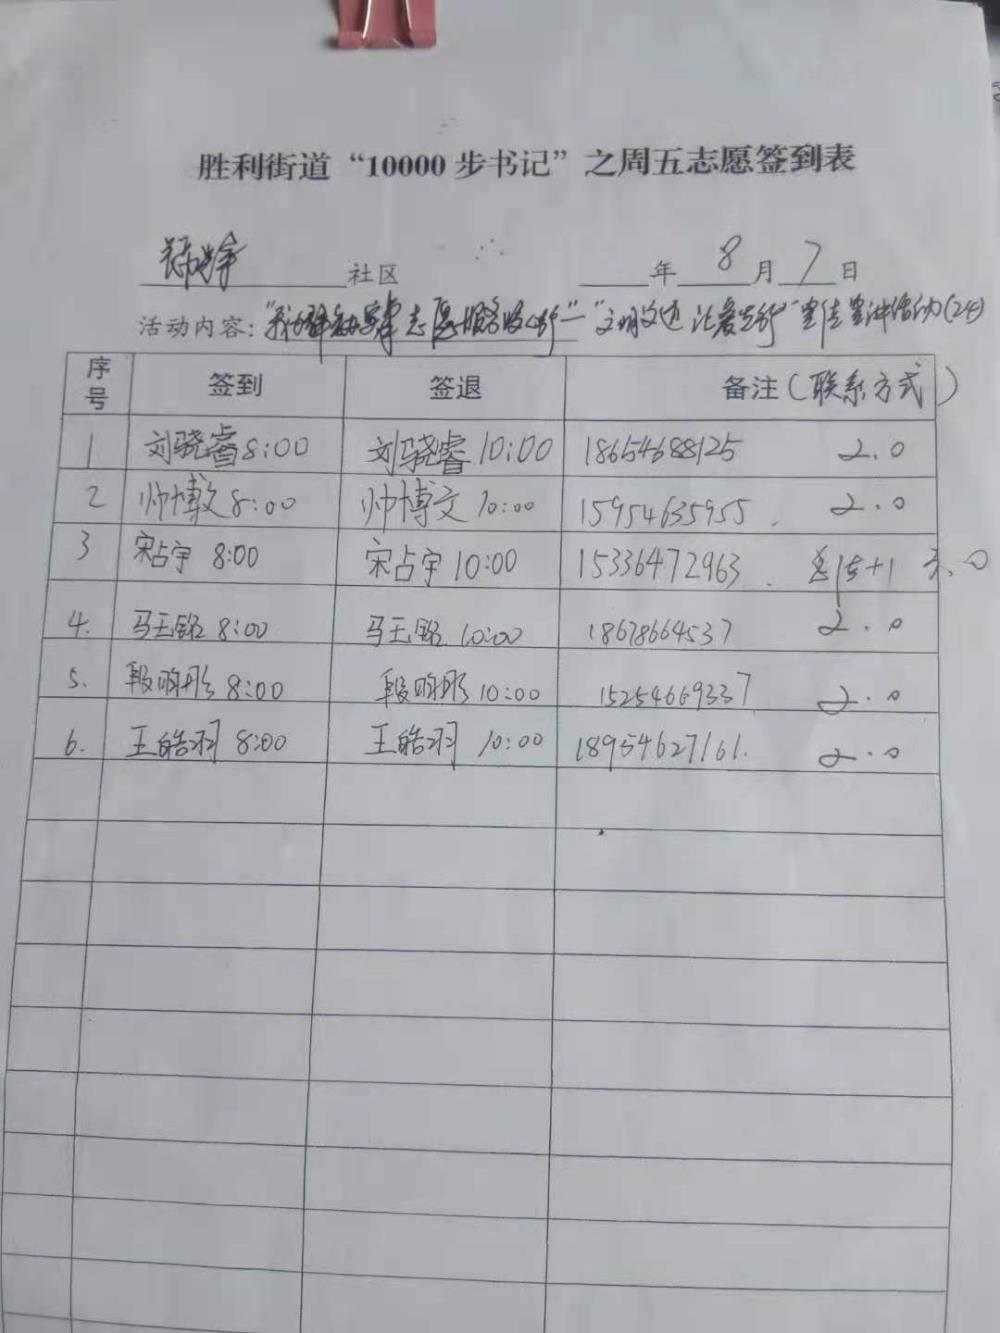 胜利街道“10000步书记”之周五志愿签到表
社区 年 8 月 7 日
活动内容： 志愿服务 文明 让爱 活动(24)
序号 签到 签退 备注(联系方式)
1 刘骁睿 8:00 刘骁睿 10:00 18654688125 2.0
2 帅博文 8:00 帅博文 10:00 15954635955. 2.0
3 宋占宇 8:00 宋占宇 10:00 15336472963. +1 3.0
4. 马玉铭 8:00 马玉铭 10:00 18678664537 2.0
5. 段昫彤 8:00 段昫彤 10:00 15254669337 2.0
6. 王皓羽 8:00 王皓羽 10:00 18954627161. 2.0